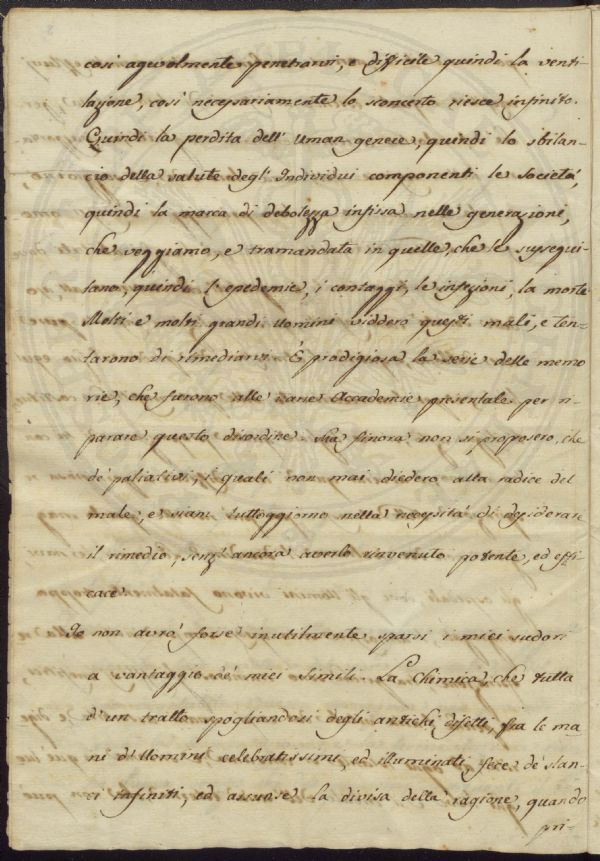 così agevolmente penetrarvi, e difficile quindi la venti-
lazione, così necessariamente lo sconcerto riesce infinito.
Quindi la perdita dell' Uman genere, quindi lo sbilan-
cio della salute degl' Individui componenti le Società,
quindi la marca di debolezza infissa nelle generazioni,
che veggiamo, e tramandata in quelle, che le sussegui-
tano, quindi l' epedemie, i contaggi, le infezioni, la morte
Molti e molti grandi Uomini viddero questi mali, e ten-
tarono di rimediarvi. È prodigiosa la serie delle memo
rie, che furono alle varie Accademie presentate per ri-
parare questo disordine. Ma finora non si proposero, che
de' paliativi, i quali non mai diedero alla radice del
male, e siam tuttoggiorno nella necessità di desiderare
il rimedio, senz' ancora averlo rinvenuto potente, ed effi-
cace
Io non avrò forse inutilmente sparsi i miei sudori
a vantaggio de' miei simili. La Chimica, che tutta
d'un tratto spogliandosi degli antichi difetti, fra le ma
ni d' Uomini celebratissimi, ed illuminati fece de' slan-
ci infiniti, ed assunse la divisa della ragione, quando
pri-